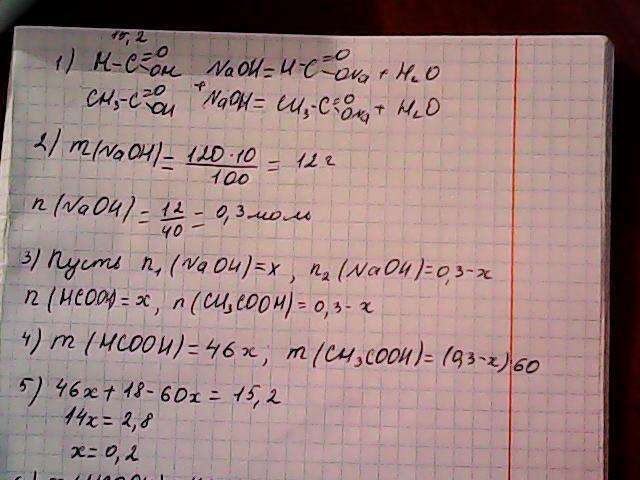 15,2
1) H-C=O OH NaOH = H-C=O ONa + H2O
CH3-C=O OH + NaOH = CH3-C=O ONa + H2O
2) m(NaOH) = 120·10 / 100 = 12 г
n(NaOH) = 12 / 40 = 0,3 моль
3) Пусть n1(NaOH)=x, n2(NaOH)=0,3-x
n(HCOOH)=x, n(CH3COOH)=0,3-x
4) m(HCOOH)=46x, m(CH3COOH)=(0,3-x)60
5) 46x+18-60x=15,2
14x=2,8
x=0,2